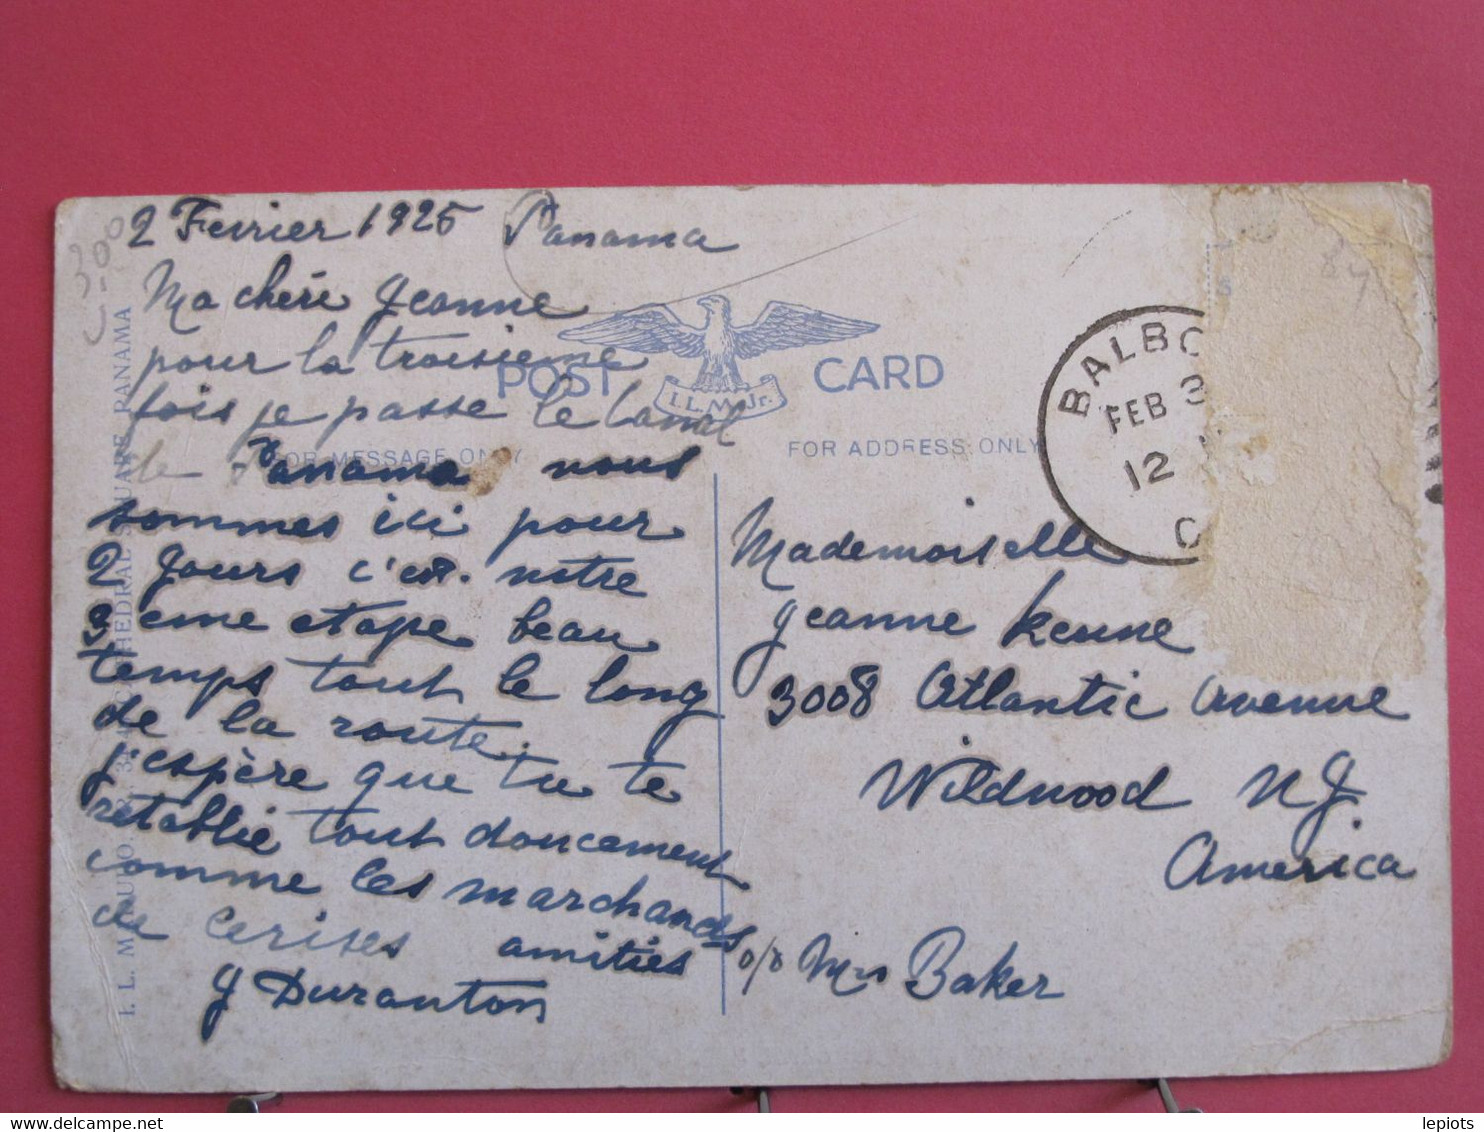 2 Fevrier 1925 Panama
Ma chère Jeanne
pour la troisieme
fois je passe le Canal
de Panama nous
sommes ici pour
2 Jours c'est notre
3 eme etape beau
temps tout le long
de la route.
j'espère que tu te
retablie tout doucement
comme les marchands
de Cerises amitiés
J Duranton
POST CARD
I. L. M. Jr.
FOR MESSAGE ONLY
FOR ADDRESS ONLY
BALBO
FEB 3
12
C
Mademoiselle
Jeanne Keune
3008 Atlantic Avenue
Wildwood N J
America
c/o Mrs Baker
I. L. MADURO JR.
CATHEDRAL SQUARE PANAMA
3.00
lepiots